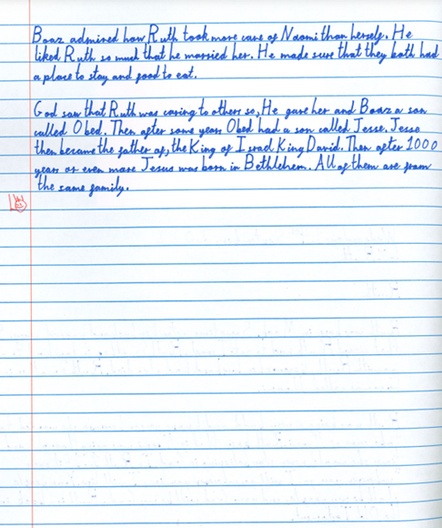 Boaz admired how Ruth took more care of Naomi than herself. He
liked Ruth so much that he married her. He made sure that they both had
a place to stay and food to eat.
God saw that Ruth was caring to others so, He gave her and Boaz a son
called Obed. Then after some years Obed had a son called Jesse. Jesse
then became the father of, the King of Israel King David. Then after 1000
years or even more Jesus was born in Bethlehem. All of them are from
the same family.